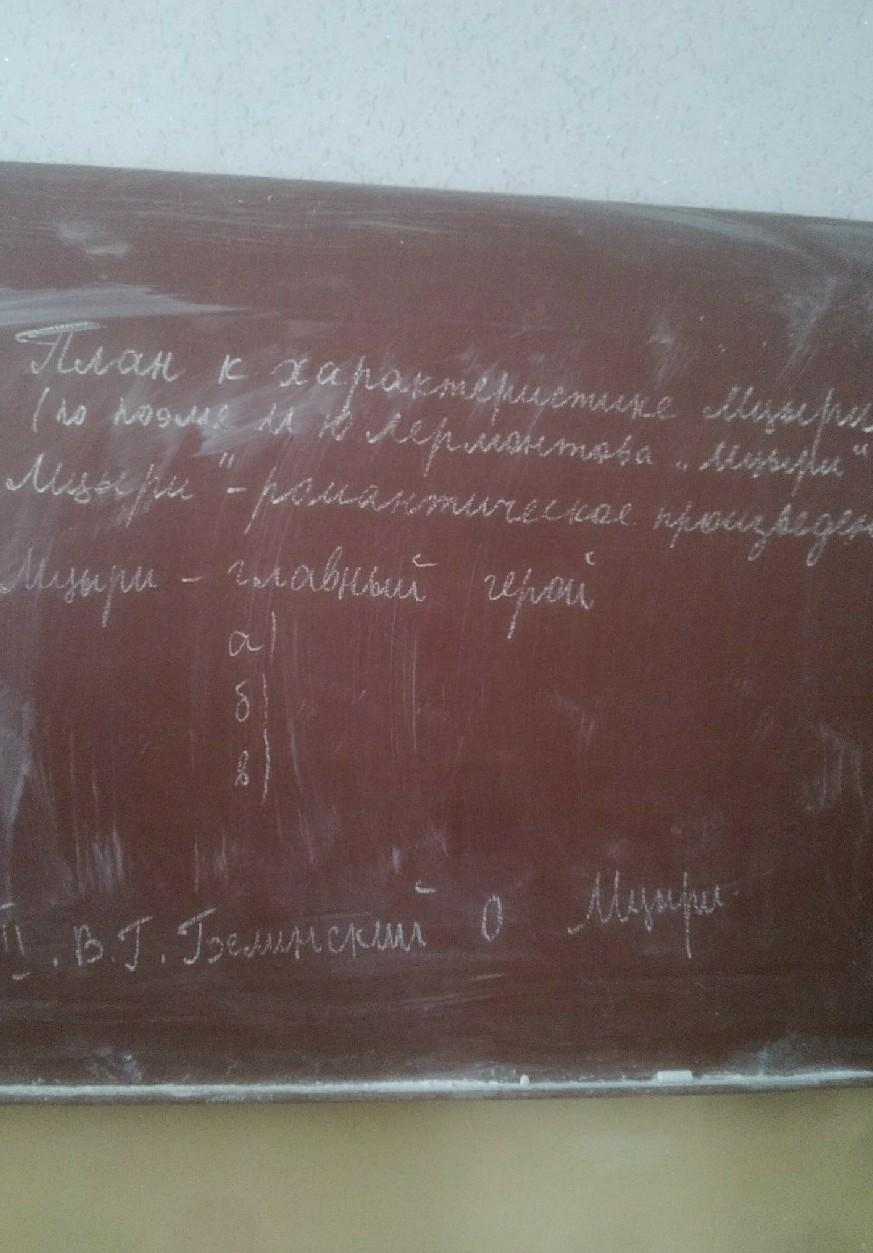 План к характеристике Мцыри
(по поэме М Ю Лермонтова „Мцыри“
Мцыри" - романтическое произведен
Мцыри - главный герой
а)
б)
в)
III. В.Г. Белинский о Мцыри